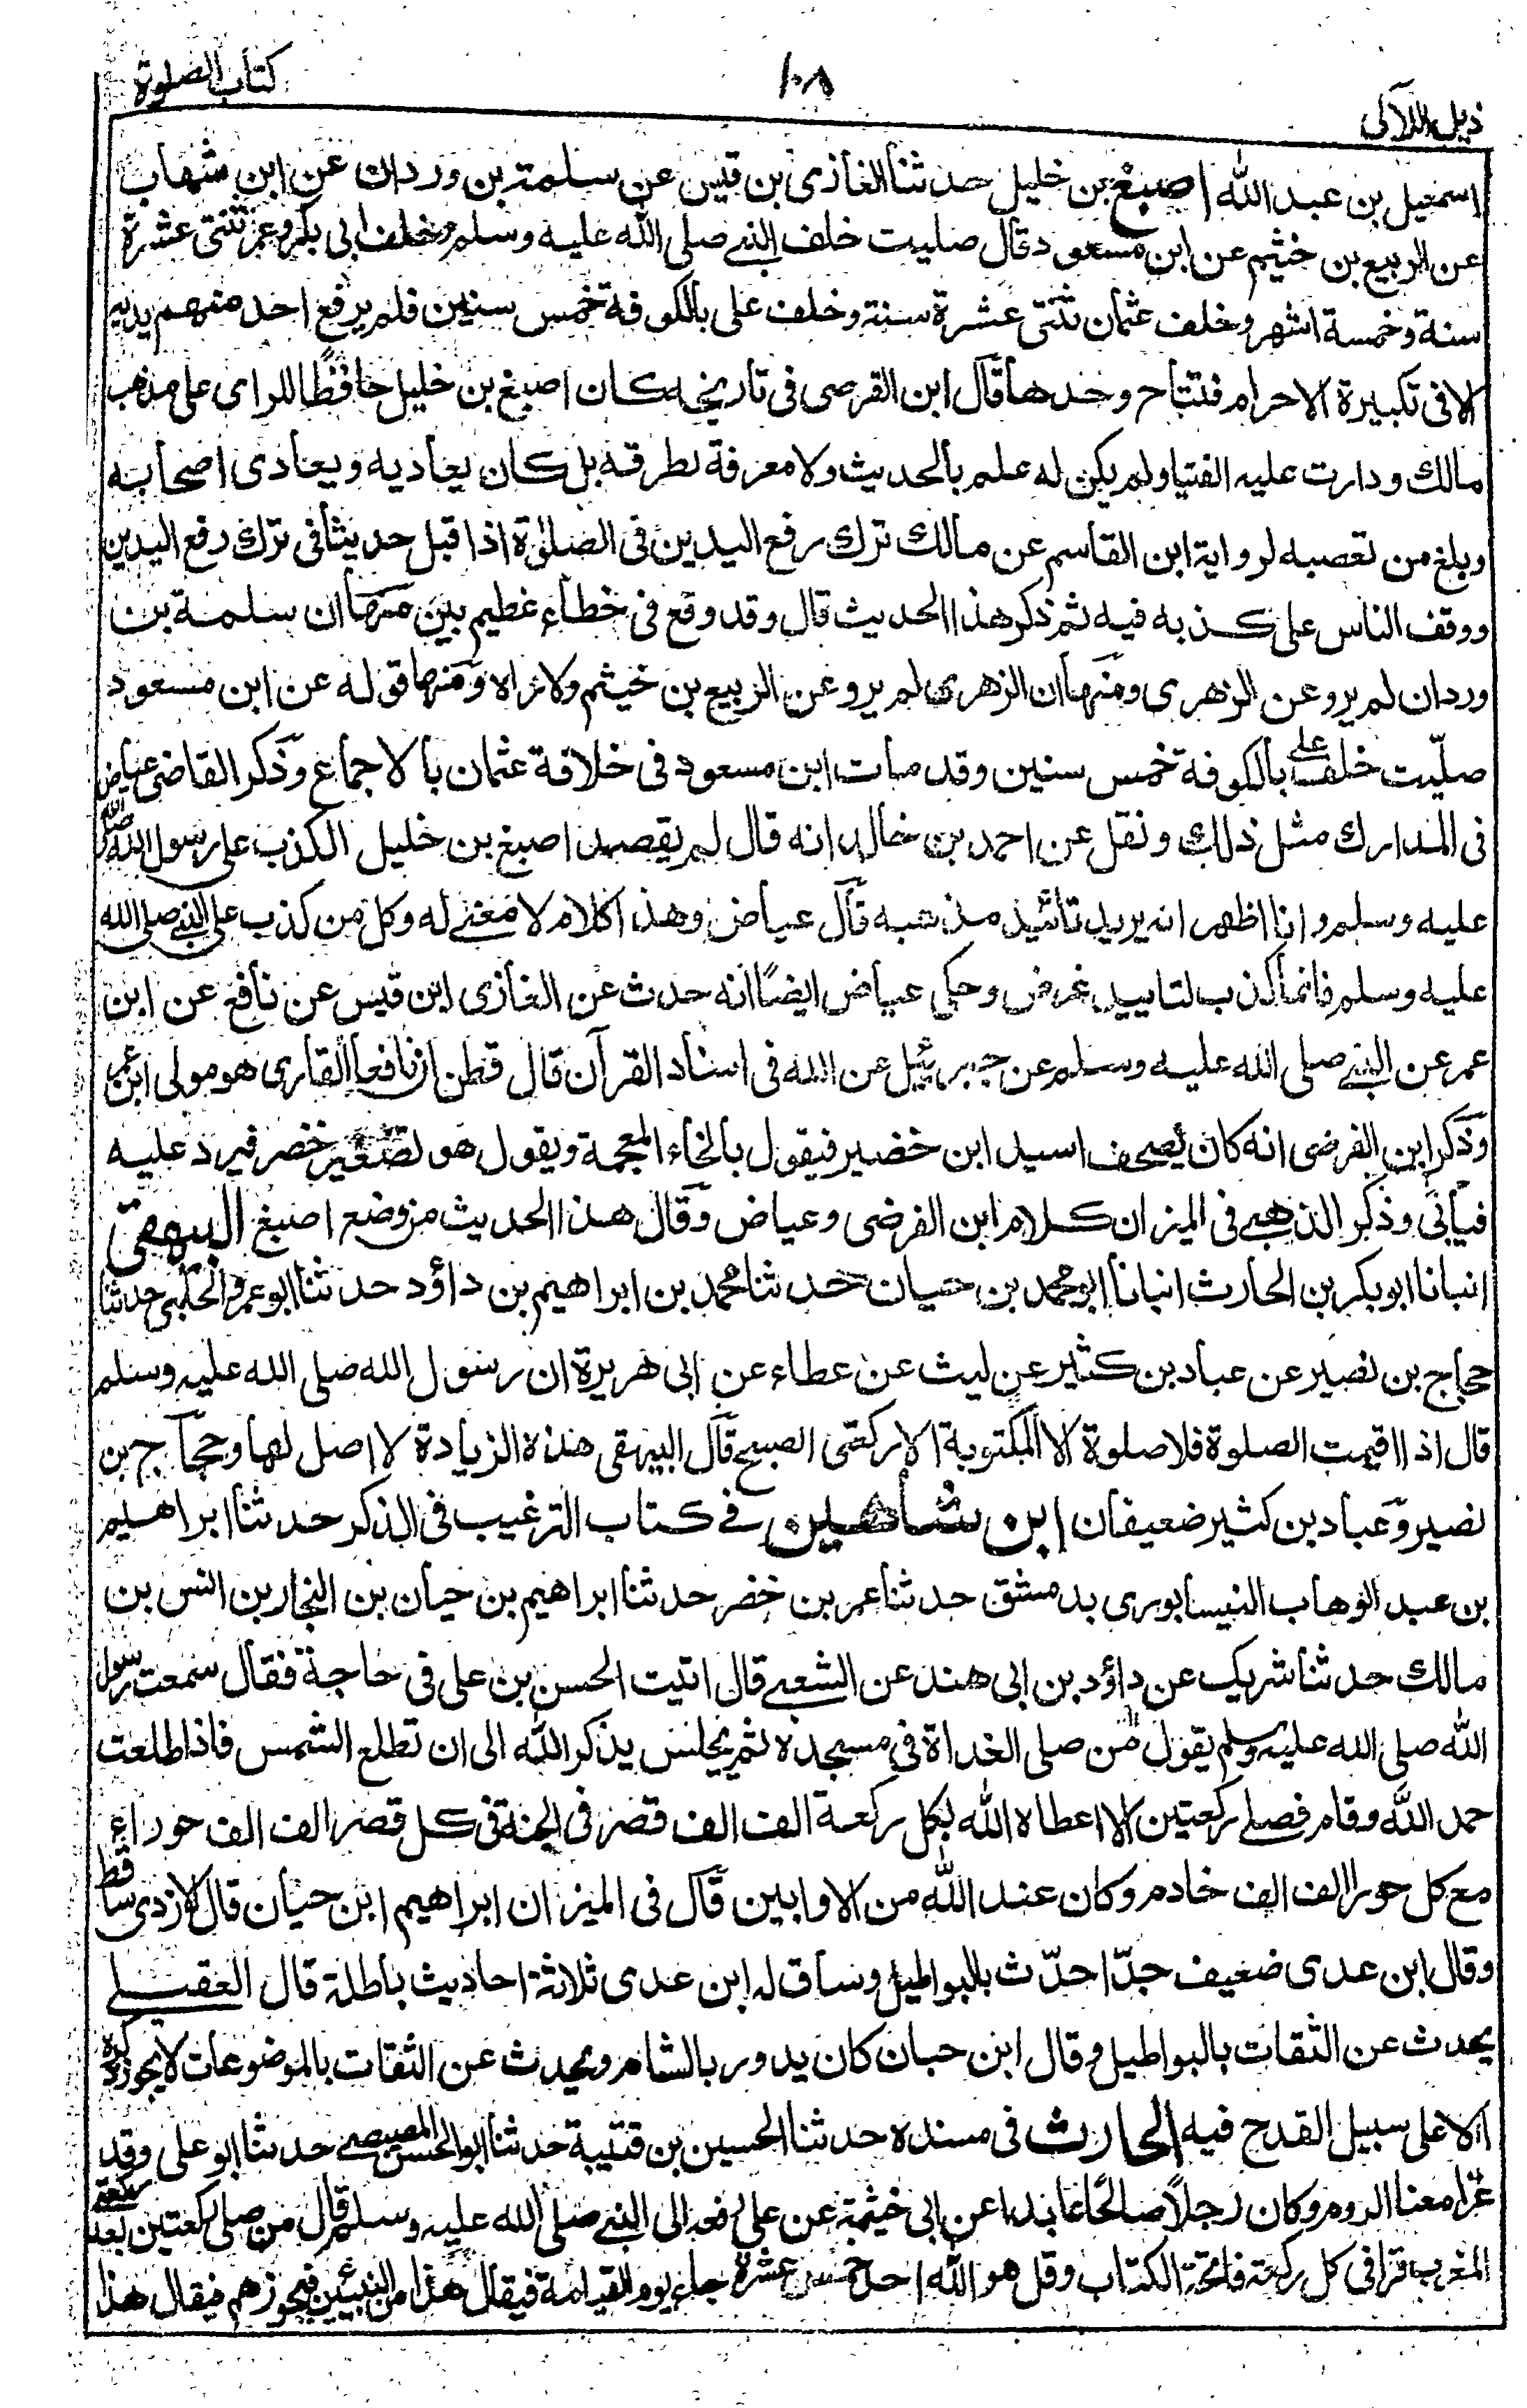 كتاب الصلوة
١٠٨
ذيل اللآلى
اسمعيل بن عبد الله اصبغ بن خليل حدثنا الغازى بن قيس عن سلمة بن وردان عن ابن شهاب
عن الربيع بن خثيم عن ابن مسعود قال صليت خلف النبى صلى الله عليه وسلم وخلف ابى بكر وعمر ثنتى عشرة
سنة وخمسة اشهر وخلف عثمان ثنتى عشرة سنة وخلف على بالكوفة خمس سنين فلم يرفع احد منهم يديه
الا فى تكبيرة الاحرام فتتاح وحدها قال ابن القرضى فى تاريخه كان اصبغ بن خليل حافظا للراى على مذهب
مالك ودارت عليه الفتيا ولم يكن له علم بالحديث ولا معرفة بطرقه بل كان يعاديه ويعادى اصحابه
وبلغ من تعصبه لرواية ابن القاسم عن مالك ترك رفع اليدين فى الصلوة اذا قبل حديثا فى ترك رفع اليدين
ووقف الناس على كذبه فيه ثم ذكر هذا الحديث قال وقد وقع فى خطاء عظيم بين منها ان سلمة بن
وردان لم يرو عن الزهرى ومنها ان الزهرى لم يرو عن الربيع بن خيثم ولا راه ومنها قوله عن ابن مسعود
صليت خلف على بالكوفة خمس سنين وقد مات ابن مسعود فى خلافة عثمان بالاجماع وذكر القاضى عياض
فى المدارك مثل ذلك ونقل عن احمد بن خالد انه قال لم يقصد اصبغ بن خليل الكذب على رسول الله صلى الله
عليه وسلم وانا اظهر انه يريد تائيد مذهبه قال عياض وهذا كلام لا معنى له وكل من كذب على النبى صلى الله
عليه وسلم فانما كذب لتاييد غرض وحكى عياض ايضا انه حدث عن الغازى ابن قيس عن نافع عن ابن
عمر عن النبى صلى الله عليه وسلم عن جبرئيل عن الله فى اسناد القرآن قال قطن ان نافعا القارى هو مولى ابن عمر
وذكر ابن الفرضى انه كان يصحف اسيد ابن خضير فيقول بالخاء المعجمة ويقول هو تصغير خضر فيرد عليه
فيأبى وذكر الذهبى فى الميزان كلام ابن الفرضى وعياض وقال هذا الحديث من وضع اصبغ البيهقى
انبانا ابو بكر بن الحارث انبانا ابو محمد بن حيان حدثنا محمد بن ابراهيم بن داؤد حدثنا ابو عمر والحلبى حدثنا
حجاج بن نصير عن عباد بن كثير عن ليث عن عطاء عن ابى هريرة ان رسول الله صلى الله عليه وسلم
قال اذا اقيمت الصلوة فلا صلوة الا المكتوبة الا ركعتى الصبح قال البيهقى هذه الزيادة لا اصل لها وحجاج بن
نصير وعباد بن كثير ضعيفان ابن شاهين فى كتاب الترغيب فى الذكر حدثنا ابراهيم
بن عبد الوهاب النيسابورى بدمشق حدثنا عمر بن خضر حدثنا ابراهيم بن حيان بن النجار بن انس بن
مالك حدثنا شريك عن داؤد بن ابى هند عن الشعبى قال اتيت الحسن بن على فى حاجة فقال سمعت رسول
الله صلى الله عليه وسلم يقول من صلى الغداة فى مسجده ثم يجلس يذكر الله الى ان تطلع الشمس فاذا طلعت
حمد الله وقام فصلى ركعتين الا اعطاه الله بكل ركعة الف الف قصر فى الجنة فى كل قصر الف الف حوراء
مع كل حورا الف الف خادم وكان عند الله من الاوابين قال فى الميزان ابراهيم ابن حيان قال الازدى ساقط
وقال ابن عدى ضعيف جدا حدث بالبواطيل وساق له ابن عدى ثلاثة احاديث باطلة قال العقيلى
يحدث عن الثقات بالبواطيل وقال ابن حبان كان يدور بالشام ويحدث عن الثقات بالموضوعات لا يجوز ذكره
الا على سبيل القدح فيه الحارث فى مسنده حدثنا الحسين بن قتيبة حدثنا ابو الحسن المصيصى حدثنا ابو على وقد
غزا معنا الروم وكان رجلا صالحا عابدا عن ابى خيثمة عن على رفعه الى النبى صلى الله عليه وسلم قال من صلى ركعتين بعد
المغرب قرا فى كل ركعة فاتحة الكتاب وقل هو الله احد خمس عشرة جاء يوم القيامة فيقال هذا من النبيين فيجوزهم فيقال هذا